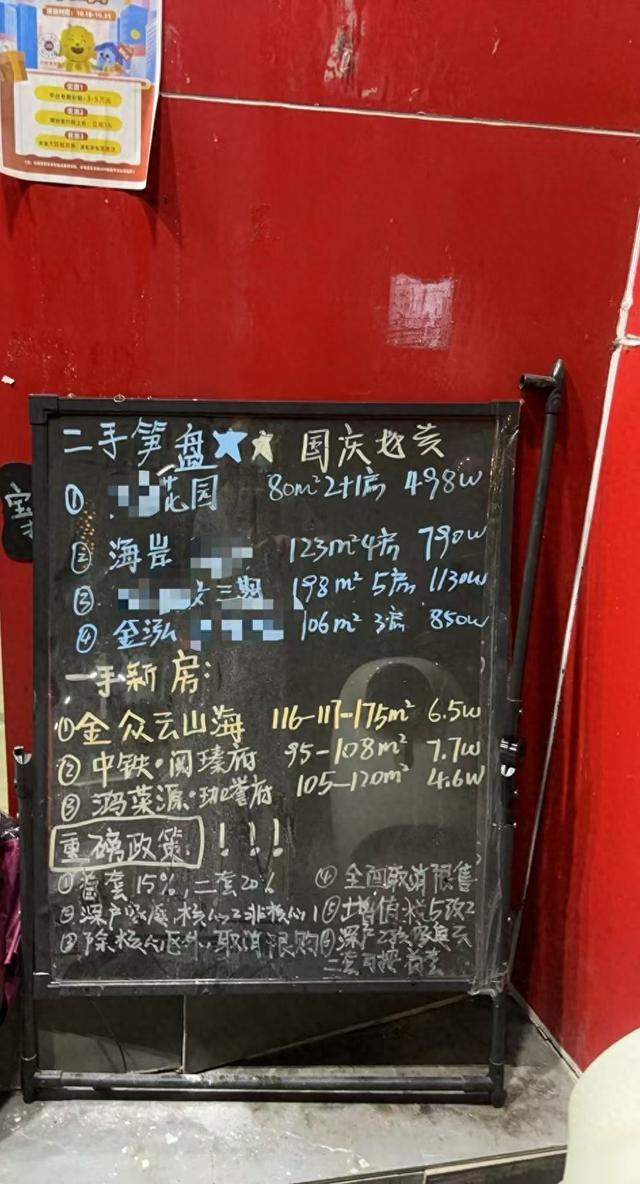 活动时间：10.18-10.31
优惠1
优惠2
优惠3
二手笋盘 国庆
① 花园 80m² 2+1房 498w
② 海岸 123m² 4房 790w
③ 三期 198m² 5房 1130w
④ 金泓 106m² 3房 850w
一手新房:
① 金众云山海 116-117-175m² 6.5w
② 中铁·阅臻府 95-108m² 7.7w
③ 鸿荣源·珈誉府 105-120m² 4.6w
重磅政策: !!!
① 首套15%, 二套20%
② 深户家庭, 核心2非核心1
③ 除核心区外, 取消限购
④ 全面取消限售
⑤ 增值税5改2
⑥ 深户2孩家庭
二套可按首套